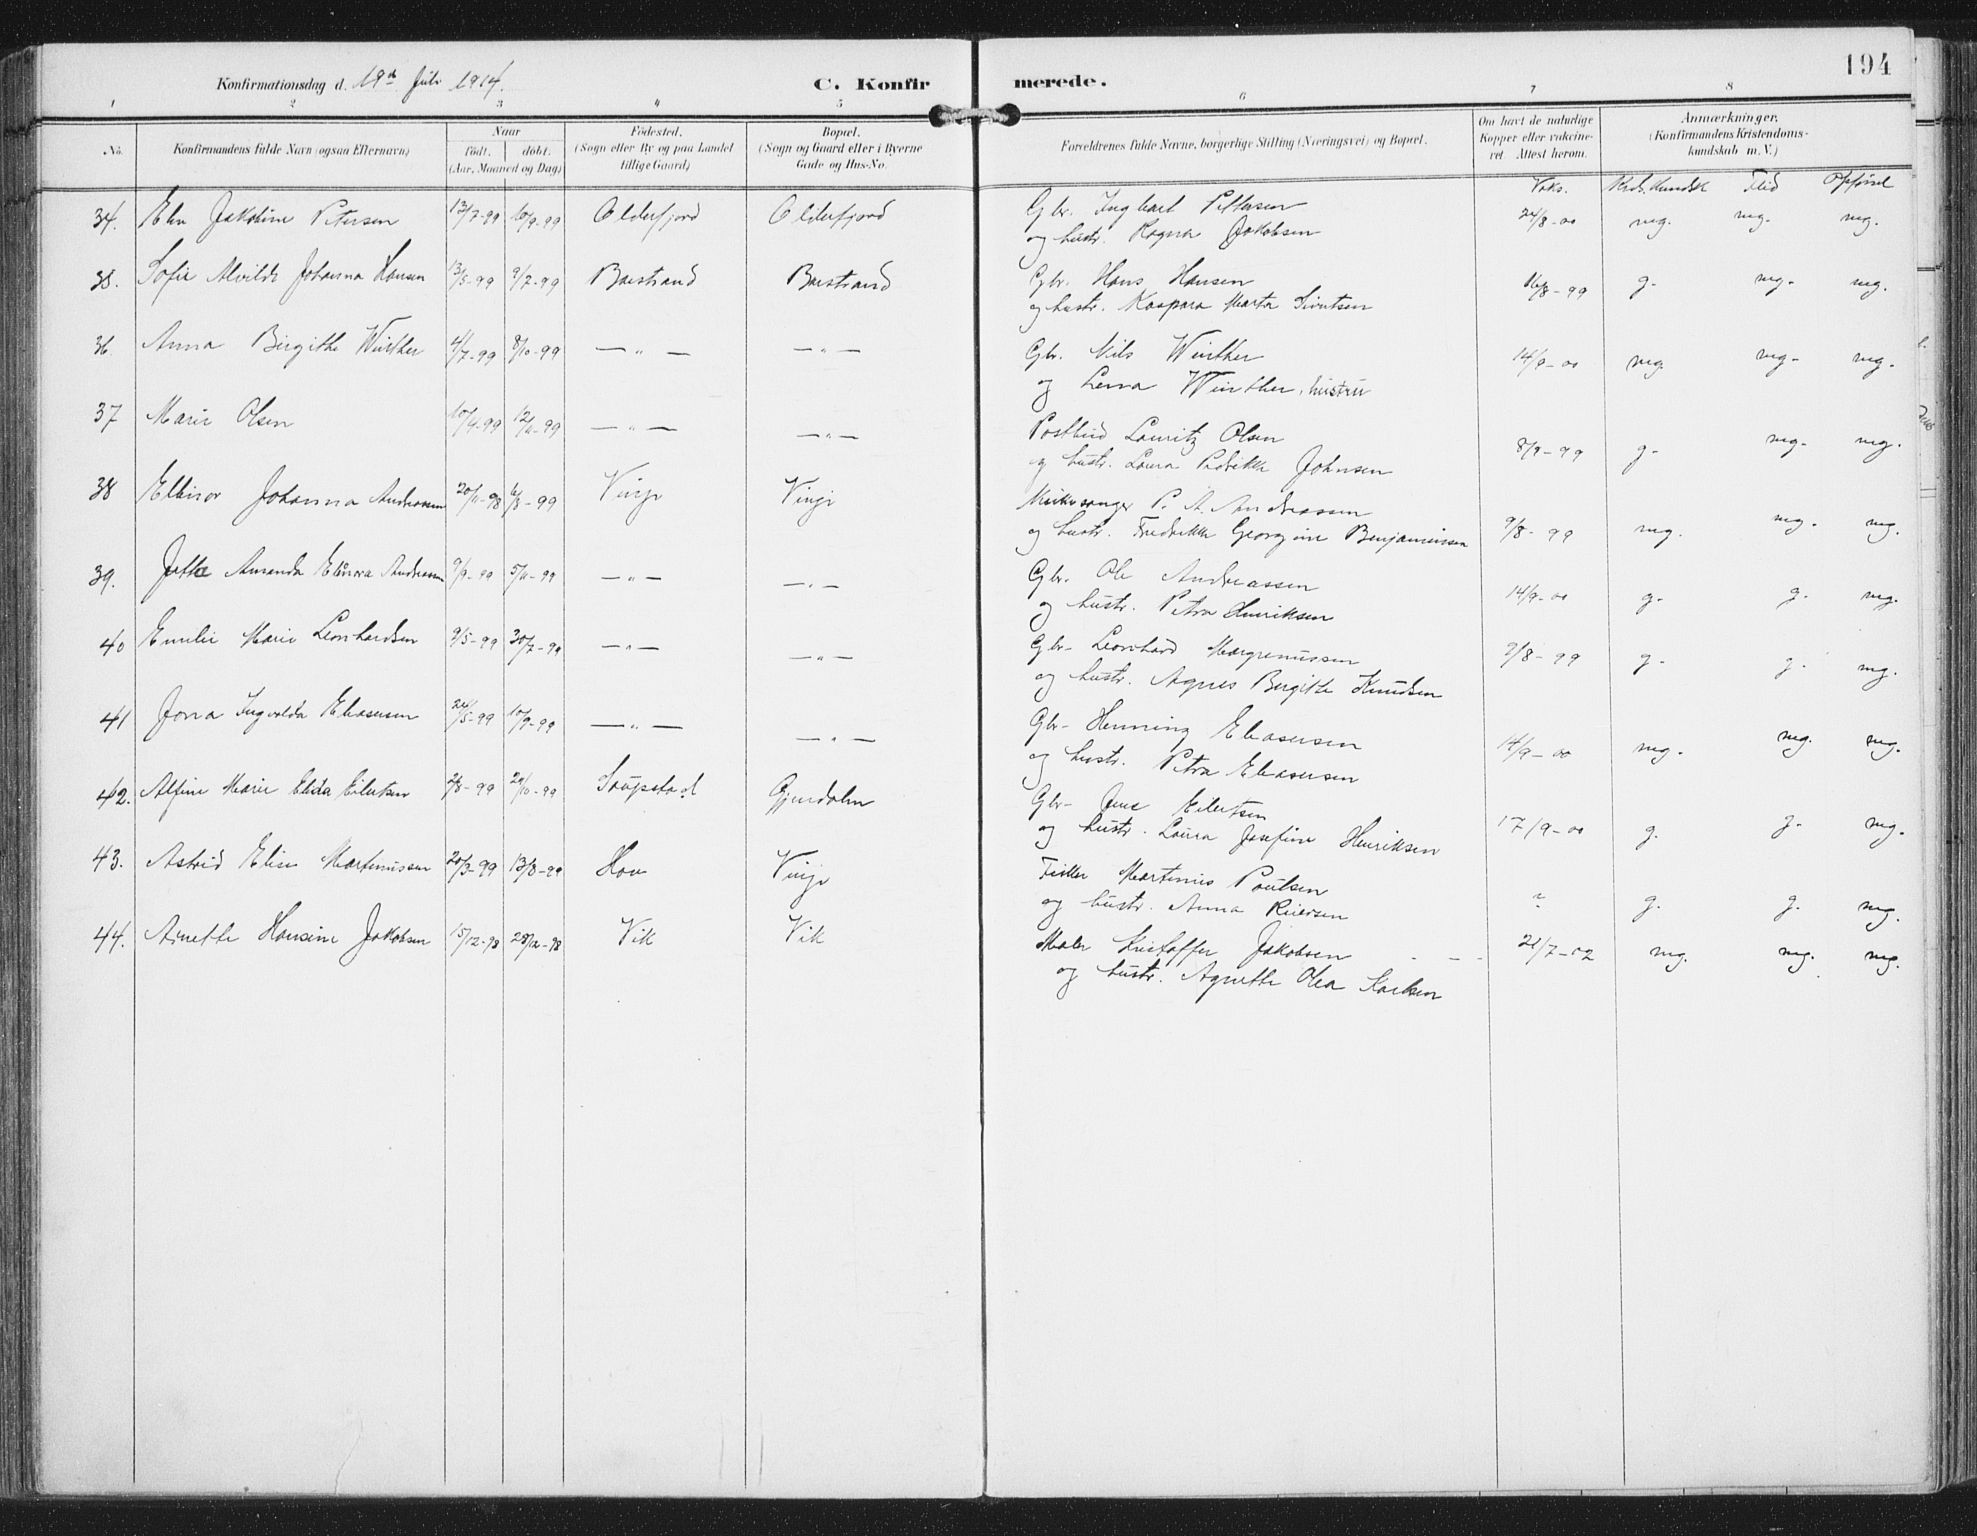 194
Konfirmationsdag d. 19de Juli 1914.
C. Konfirmerede.
1 2 3 4 5 6 7 8
No.
Konfirmandens fulde Navn (ogsaa Efternavn)
Naar
født. døbt.
(Aar, Maaned og Dag)
Födested.
(Sogn eller By og paa Landet
tillige Gaard)
Bopæl.
(Sogn og Gaard eller i Byerne
Gade og Hus-No.
Forældrenes fulde Navne, borgerlige Stilling (Næringsvei) og Bopæl.
Om havt de naturlige
Kopper eller vakcine-
ret. Attest herom.
Anmærkninger.
(Konfirmandens Kristendoms-
kundskab m. V.)
Vaks. Krds. Kundsk Flid Opførsel
34. Elen Jakobine Petersen 13/7-99 10/9-99 Olderfjord Olderfjord Gbr. Ingbart Pettersen 24/8-00 mg. mg. mg.
og hustr. Ragna Jakobsen
35. Sofie Alvilde Johanna Hansen 13/5-99 9/7-99 Barstrand Barstrand Gbr. Hans Hansen 16/8-99 g. mg. mg.
og hustr. Kaspara Marta Sivertsen
36. Anna Birgithe Winther 4/7-99 8/10-99 — „ — — „ — Gbr. Nils Winther 14/9-00 mg. mg. mg.
og Lerna Winther, hustru
37 Marie Olsen 10/9-99 12/11-99 — „ — — „ — Postbud Lauritz Olsen 8/9-99 g. mg. mg.
og hustr. Laura Johnsen
38 Ellinor Johanna Andreassen 20/11-98 6/8-99 Vinje Vinje Kirkesanger P. A. Andreassen 9/8-99 mg. mg. mg.
og hustr. Fredrikke Georgine Benjaminsen
39. Amanda Elinora Andreassen 9/9-99 5/11-99 — „ — — „ — Gbr. Ole Andreassen 14/9-00 g. g. mg.
og hustr. Petra Henriksen
40 Emilie Marie Leonhardsen 9/5-99 30/7-99 — „ — — „ — Gbr. Leonhard Magnussen 9/8-99 g. g. mg.
og hustr. Agnes Birgitte Knudsen
41 Jona Ingvalda Eliasersen 24/5-99 10/9-99 — „ — — „ — Gbr. Henning Eliasersen 14/9-00 mg. mg. mg.
og hustr. Petra Eliasersen
42. Alfine Marie Elida Eilertsen 2/8-99 29/10-99 Saupstad Gjerdalen Gbr. Jens Eilertsen 17/9-00 g. g. mg.
og hustr. Laura Josefine Henriksen
43. Astrid Elise Martinussen 20/3-99 13/8-99 Hov Vinje Fisker Martinus Poulsen ? g. g. mg.
og hustr. Anna Reiersen
44. Arnette Hansine Jakobsen 15/12-98 28/12-98 Vik Vik Maler Kristoffer Jakobsen - - - 21/7-02 mg. mg. mg.
og hustr. Agnette Olea Karlsen